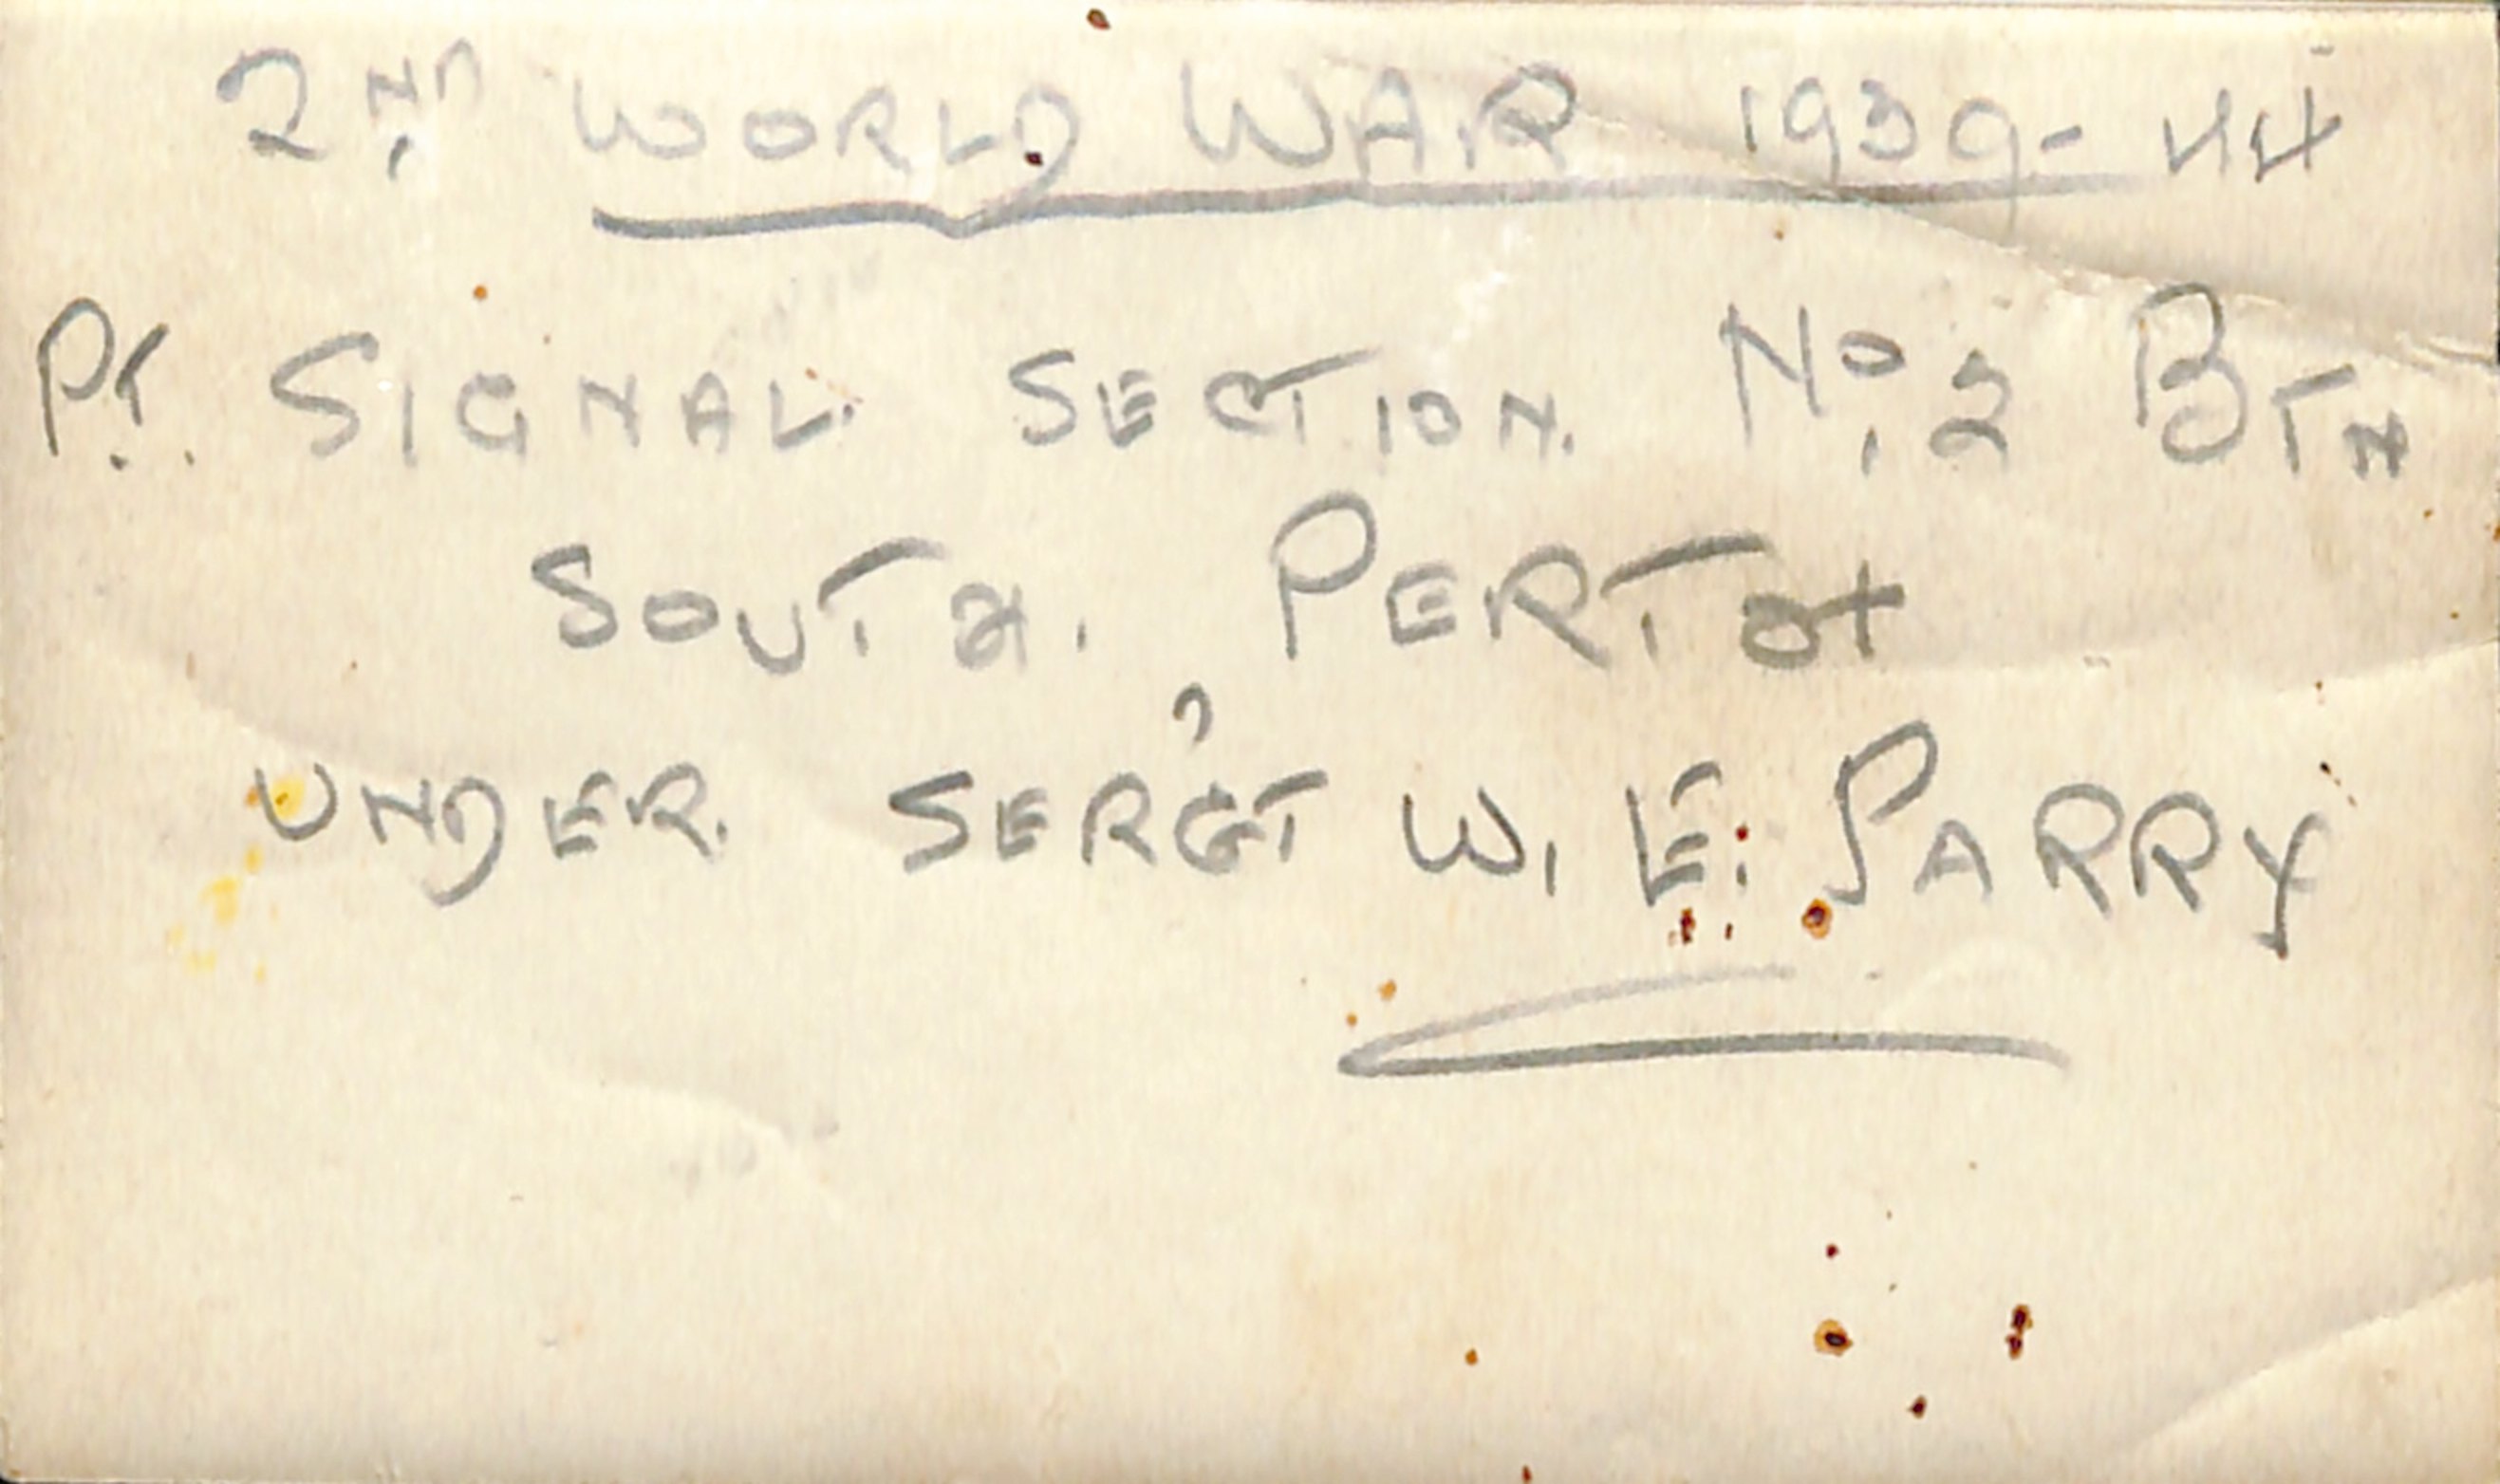 2ND WORLD WAR 1939-44
Pt. SIGNAL. SECTION. No. 2 BTN
SOUTH. PERTH
UNDER. SERG'T W. E. PARRY